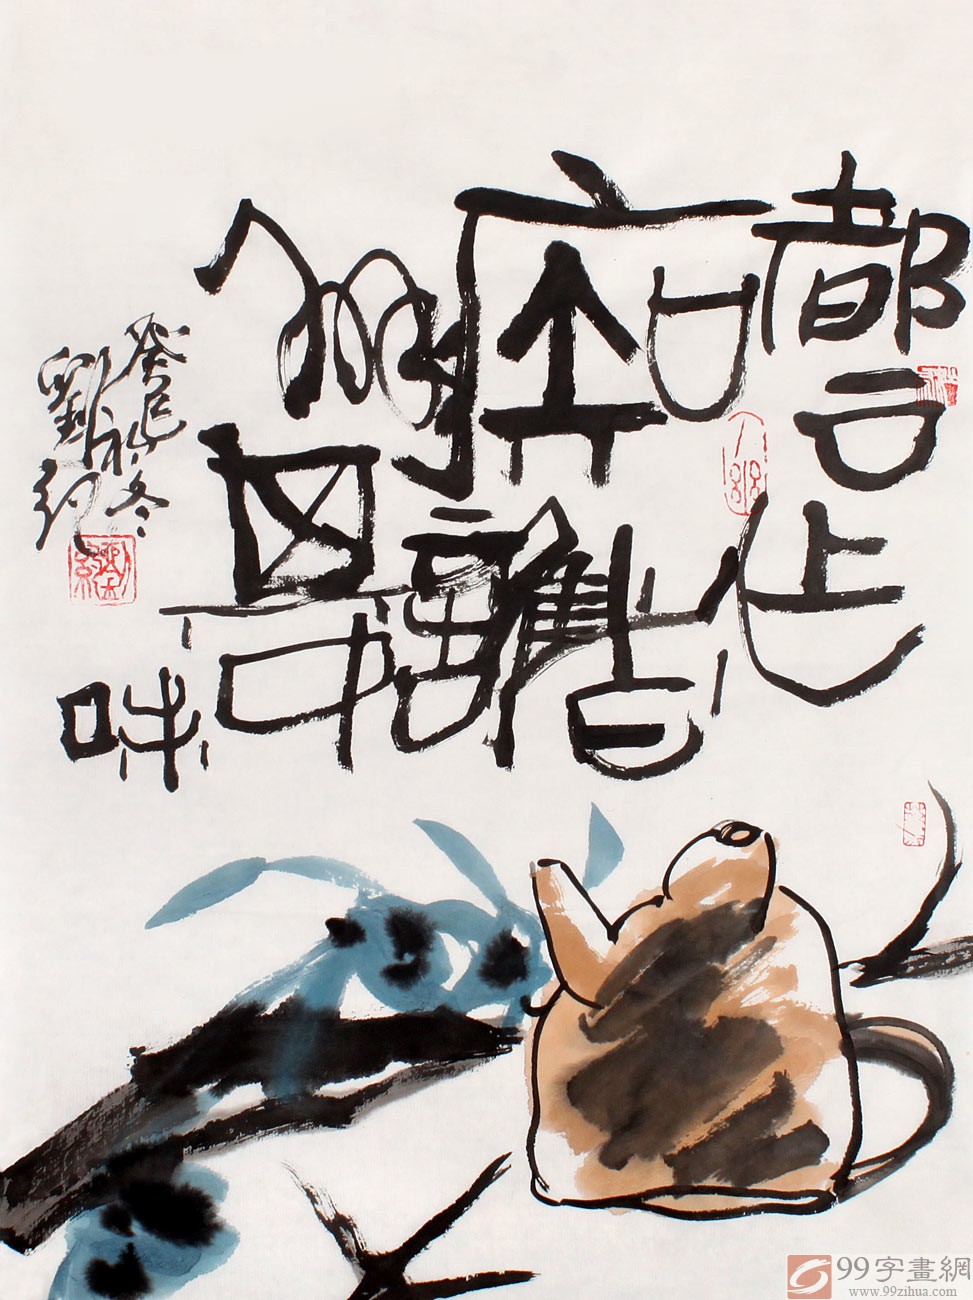 都云作者
痴誰
解其中
味
癸巳初冬
劉紀
99字畫網
www.99zihua.com